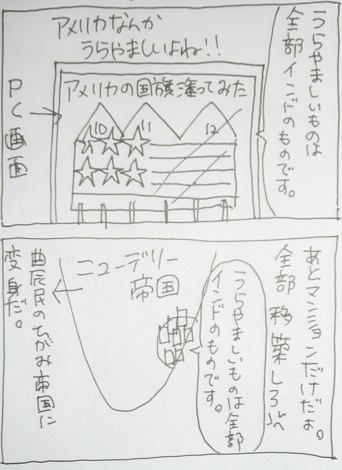 アメリカなんか
うらやましいよね!!
うらやましいものは
全部インドのものです。
アメリカの国旗塗ってみた
10 11 12
PC画面
あとマンションだけだよ。
全部 移築しろ
ニューデリー
帝国
うらやましいものは全部
インドのものです。
農民のひがみ帝国に
変身だ。